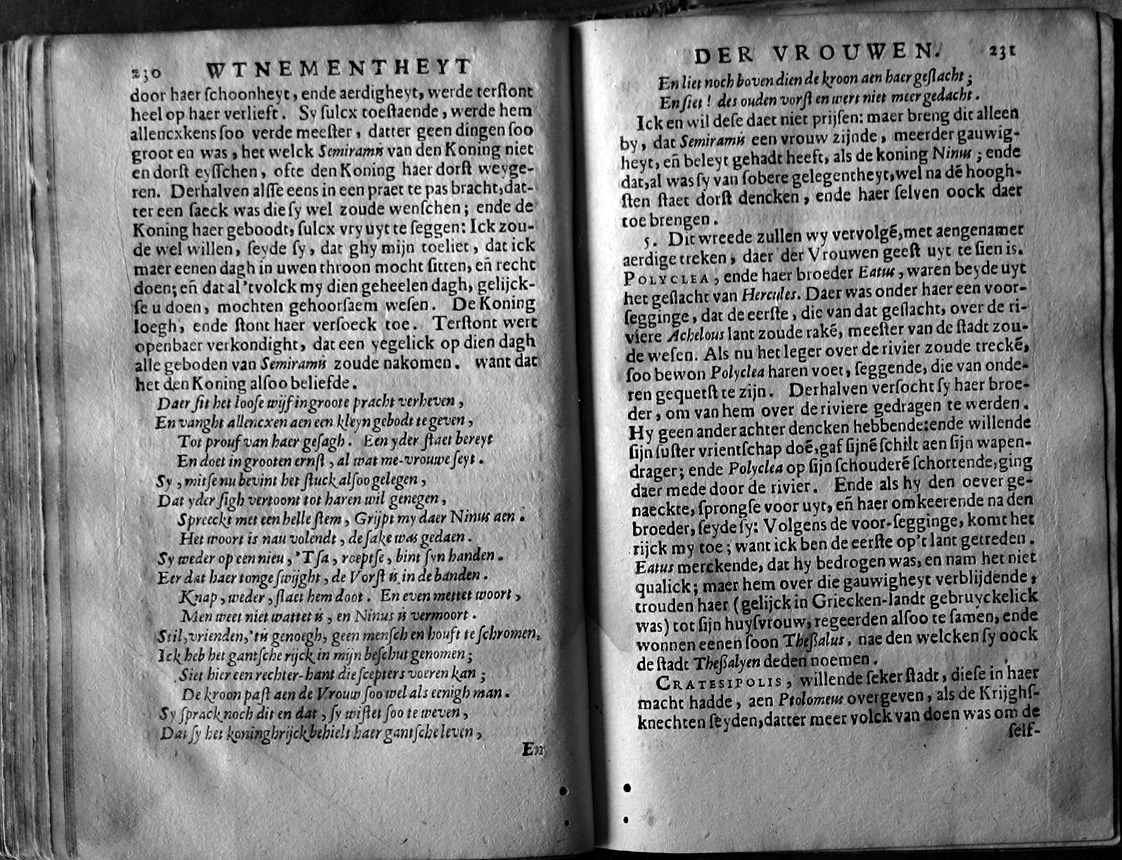 230 WTNEMENTHEYT
door haer ſchoonheyt, ende aerdigheyt, werde terſtont
heel op haer verlieft. Sy ſulcx toeſtaende, werde hem
allencxkens ſoo verde meeſter, datter geen dingen ſoo
groot en was, het welck Semiramis van den Koning niet
en dorſt eyſſchen, ofte den Koning haer dorſt weyge-
ren. Derhalven alſſe eens in een praet te pas bracht, dat-
ter een ſaeck was die ſy wel zoude wenſchen; ende de
Koning haer geboodt, ſulcx vry uyt te ſeggen: Ick zou-
de wel willen, ſeyde ſy, dat ghy mijn toeliet, dat ick
maer eenen dagh in uwen throon mocht ſitten, eñ recht
doen; eñ dat al 'tvolck my dien geheelen dagh, gelijck-
ſe u doen, mochten gehoorſaem weſen. De Koning
loegh, ende ſtont haer verſoeck toe. Terſtont wert
openbaer verkondight, dat een yegelick op dien dagh
alle geboden van Semiramis zoude nakomen. want dat
het den Koning alſoo beliefde.
Daer ſit het looſe wijf in groote pracht verheven,
En vanght allencxen aen een kleyn gebodt te geven,
Tot prouf van haer geſagh. Een yder ſtaet bereyt
En doet in grooten ernſt, al wat me-vrouwe ſeyt.
Sy, mitſe nu bevint het ſtuck alſoo gelegen,
Dat yder ſigh vertoont tot haren wil genegen,
Spreeckt met een helle ſtem, Grijpt my daer Ninus aen.
Het woort is nau volendt, de ſake was gedaen.
Sy weder op een nieu, 'Tſa, roeptſe, bint ſyn handen.
Eer dat haer tonge ſwijght, de Vorſt is in de banden.
Knap, weder, ſlaet hem doot. En even mettet woort,
Men weet niet wattet is, en Ninus is vermoort.
Stil, vrienden, 'tis genoegh, geen menſch en houft te ſchromen,
Ick heb het gantſche rijck in mijn beſchut genomen;
Siet hier een rechter-hant die ſcepters voeren kan;
De kroon paſt aen de Vrouw ſoo wel als eenigh man.
Sy ſprack noch dit en dat, ſy wiſtet ſoo te weven,
Dat ſy het koninghrijck behielt haer gantſche leven,
En
DER VROUWEN. 231
En liet noch boven dien de kroon aen haer geſlacht;
En ſiet! des ouden vorſt en wert niet meer gedacht.
Ick en wil deſe daet niet prijſen: maer breng dit alleen
by, dat Semiramis een vrouw zijnde, meerder gauwig-
heyt, eñ beleyt gehadt heeft, als de koning Ninus; ende
dat, al was ſy van ſobere gelegentheyt, wel na dē hoogh-
ſten ſtaet dorſt dencken, ende haer ſelven oock daer
toe brengen.
5. Dit wreede zullen wy vervolgē, met aengenamer
aerdige treken, daer der Vrouwen geeſt uyt te ſien is.
POLYCLEA, ende haer broeder Eatus, waren beyde uyt
het geſlacht van Hercules. Daer was onder haer een voor-
ſegginge, dat de eerſte, die van dat geſlacht, over de ri-
viere Achelous lant zoude rakē, meeſter van de ſtadt zou-
de weſen. Als nu het leger over de rivier zoude treckē,
ſoo bewon Polyclea haren voet, ſeggende, die van onde-
ren gequetſt te zijn. Derhalven verſocht ſy haer broe-
der, om van hem over de riviere gedragen te werden.
Hy geen ander achter dencken hebbende: ende willende
ſijn ſuſter vrientſchap doē, gaf ſijnē ſchilt aen ſijn wapen-
drager; ende Polyclea op ſijn ſchouderē ſchortende, ging
daer mede door de rivier. Ende als hy den oever ge-
naeckte, ſprongſe voor uyt, eñ haer omkeerende na den
broeder, ſeyde ſy: Volgens de voor-ſegginge, komt het
rijck my toe; want ick ben de eerſte op't lant getreden.
Eatus merckende, dat hy bedrogen was, en nam het niet
qualick; maer hem over die gauwigheyt verblijdende,
trouden haer (gelijck in Griecken-landt gebruyckelick
was) tot ſijn huyſvrouw, regeerden alſoo te ſamen, ende
wonnen eenen ſoon Theſſalus, nae den welcken ſy oock
de ſtadt Theſſalyen deden noemen.
CRATESIPOLIS, willende ſeker ſtadt, dieſe in haer
macht hadde, aen Ptolomeus overgeven, als de Krijghſ-
knechten ſeyden, datter meer volck van doen was om de
ſelf-